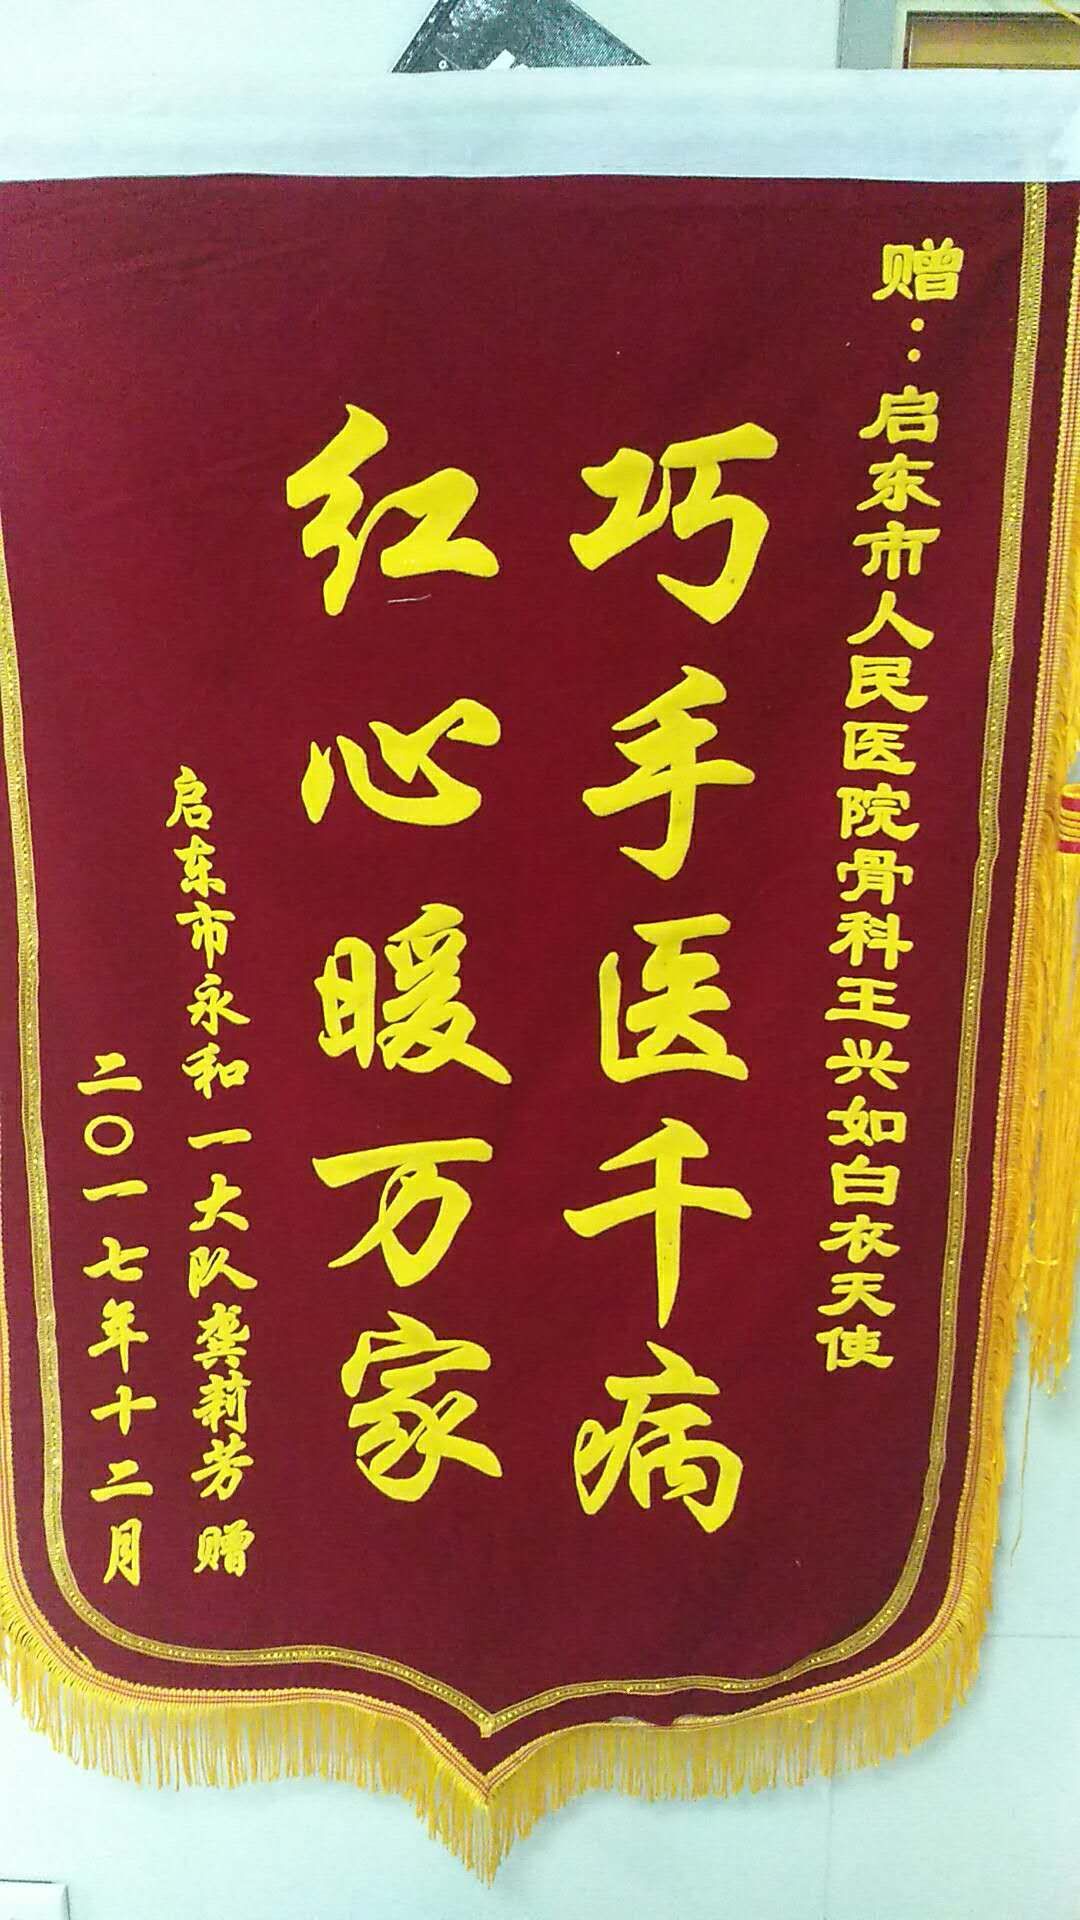 赠：启东市人民医院骨科王兴如白衣天使
巧手医千病
红心暖万家
启东市永和一大队龚莉芳 赠
二〇一七年十二月